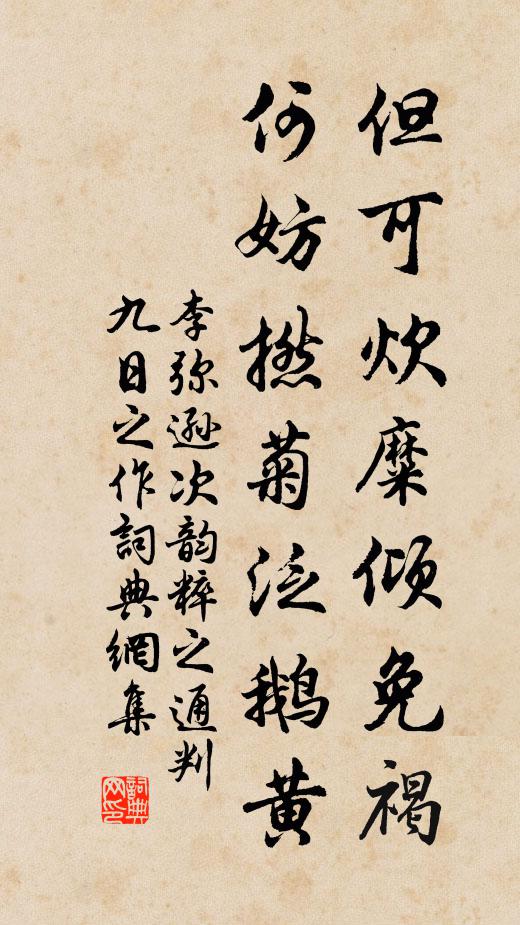 但可炊糜倾免褐
何妨撚菊泛鹅黄
李弥逊次韵粹之通判
九日之作詞典網集
詞典网印